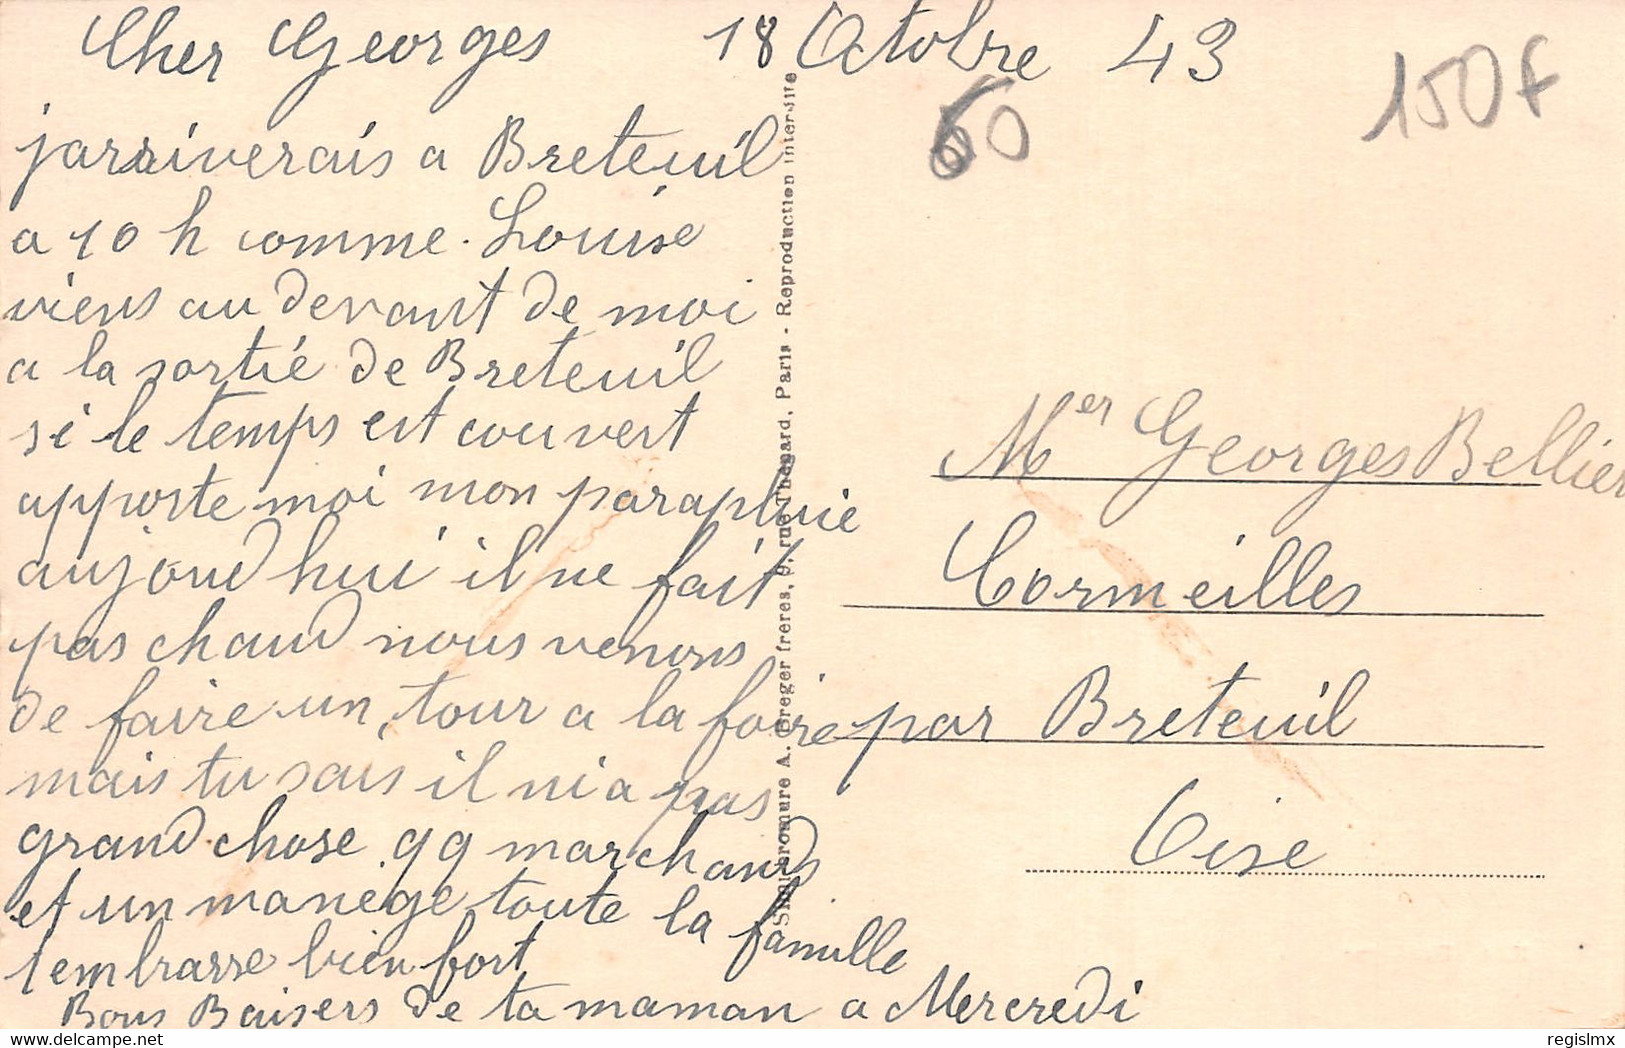 Cher Georges 18 Octobre 43
jarriverais a Breteuil
a 10 h comme Louise
viens au devant de moi
a la sortie de Breteuil
si le temps est couvert
apporte moi mon parapluie
aujoud hui il ne fait
pas chaud nous venons
de faire un tour a la foire
mais tu sais il ni a pas
grand chose qq marchands
et un manège toute la famille
tembrasse bien fort
Bons Baisers de ta maman a Mercredi
60
150F
Mer Georges Bellier
Cormeilles
par Breteuil
Oise
Simili-bromure A. Breger frères, 9, rue Thénard, Paris - Reproduction interdite
delcampe.net
regislmx